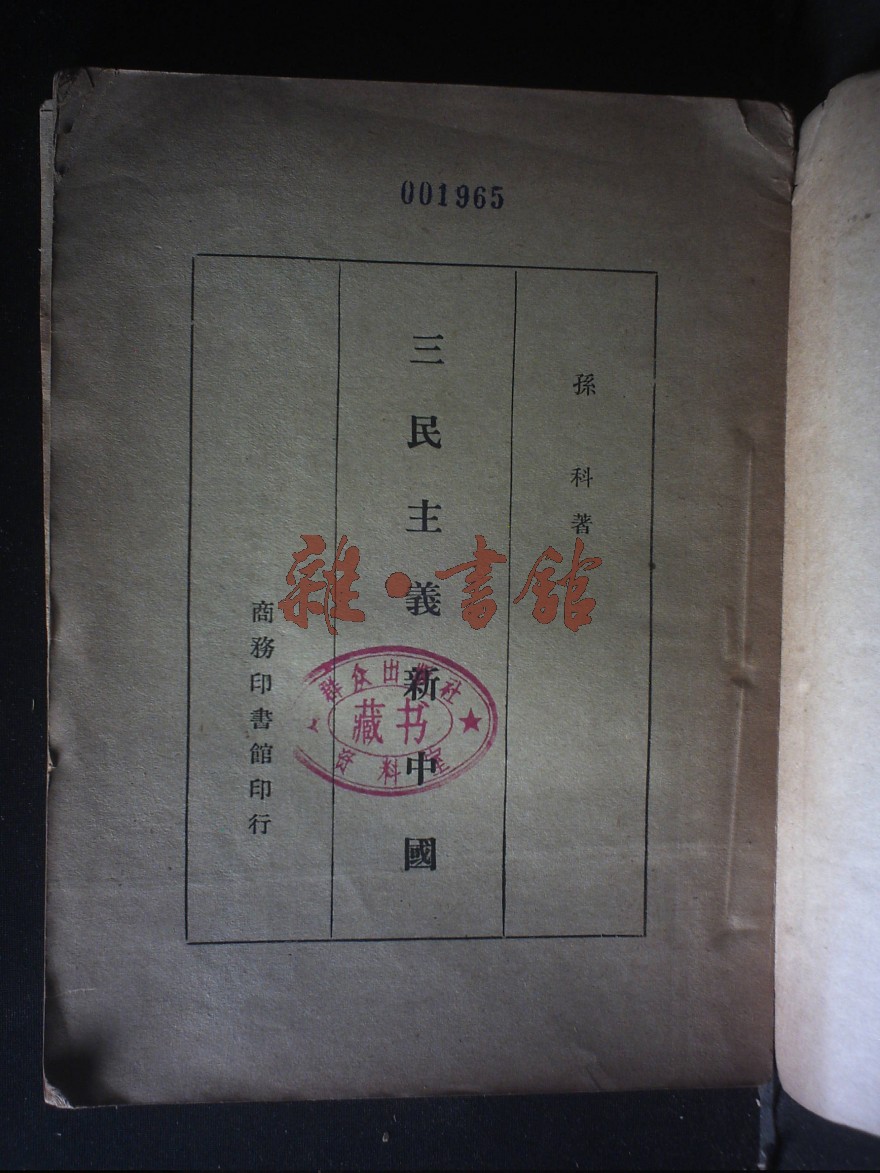 001965
孫科著
三民主義新中國
商務印書館印行
雜·書館
群众出版社
藏书
资料室